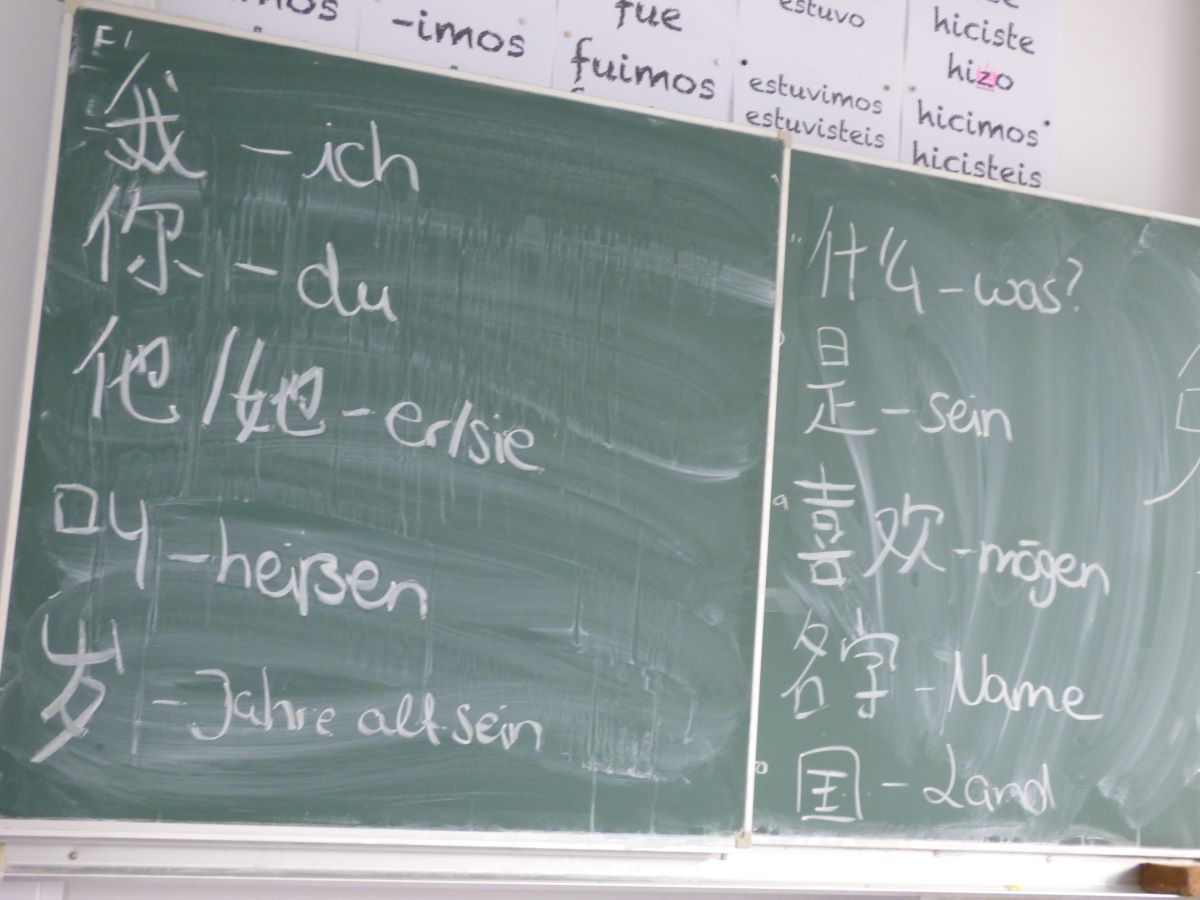 -imos
fue
fuimos
estuvo
estuvimos
estuvisteis
hiciste
hizo
hicimos
hicisteis
我 - ich
你 - du
他/她 - er/sie
叫 - heißen
岁 - Jahre alt sein
什么 - was?
是 - sein
喜欢 - mögen
名字 - Name
国 - Land